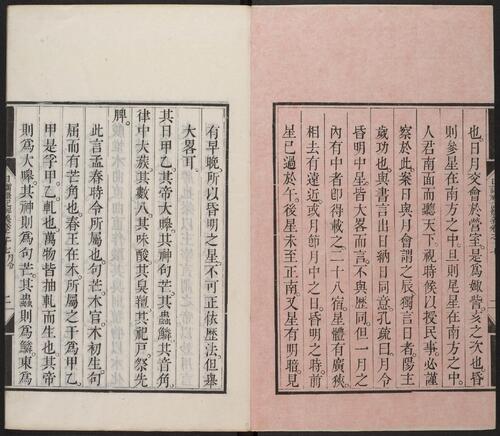 也日月交會於營室是為娵訾亥之次也昏
則參星在南方之中旦則尾星在南方之中
人君南面而聽天下視時候以授民事必謹
察於此案日與月會謂之辰獨言日者陽主
歲功也與書言出日納日同意孔疏曰月令
昏明中星皆大畧而言不與歷同但一月之
內有中者即得載之二十八宿星體有廣狹
相去有遠近或月節月中之日昏明之時前
星已過於午後星未至正南又星有明暗見
有早晚所以昏明之星不可正依歷法但舉
大畧耳
其日甲乙其帝大皞其神句芒其蟲鱗其音角
律中大蔟其數八其味酸其臭羶其祀戶祭先
脾
此言孟春時令所屬也句芒木官木初生句
屈而有芒角也春王在木所屬之干為甲乙
甲是孚甲乙軋也萬物皆抽軋而生也其帝
則為大皞其神則為句芒其蟲則為鱗東為